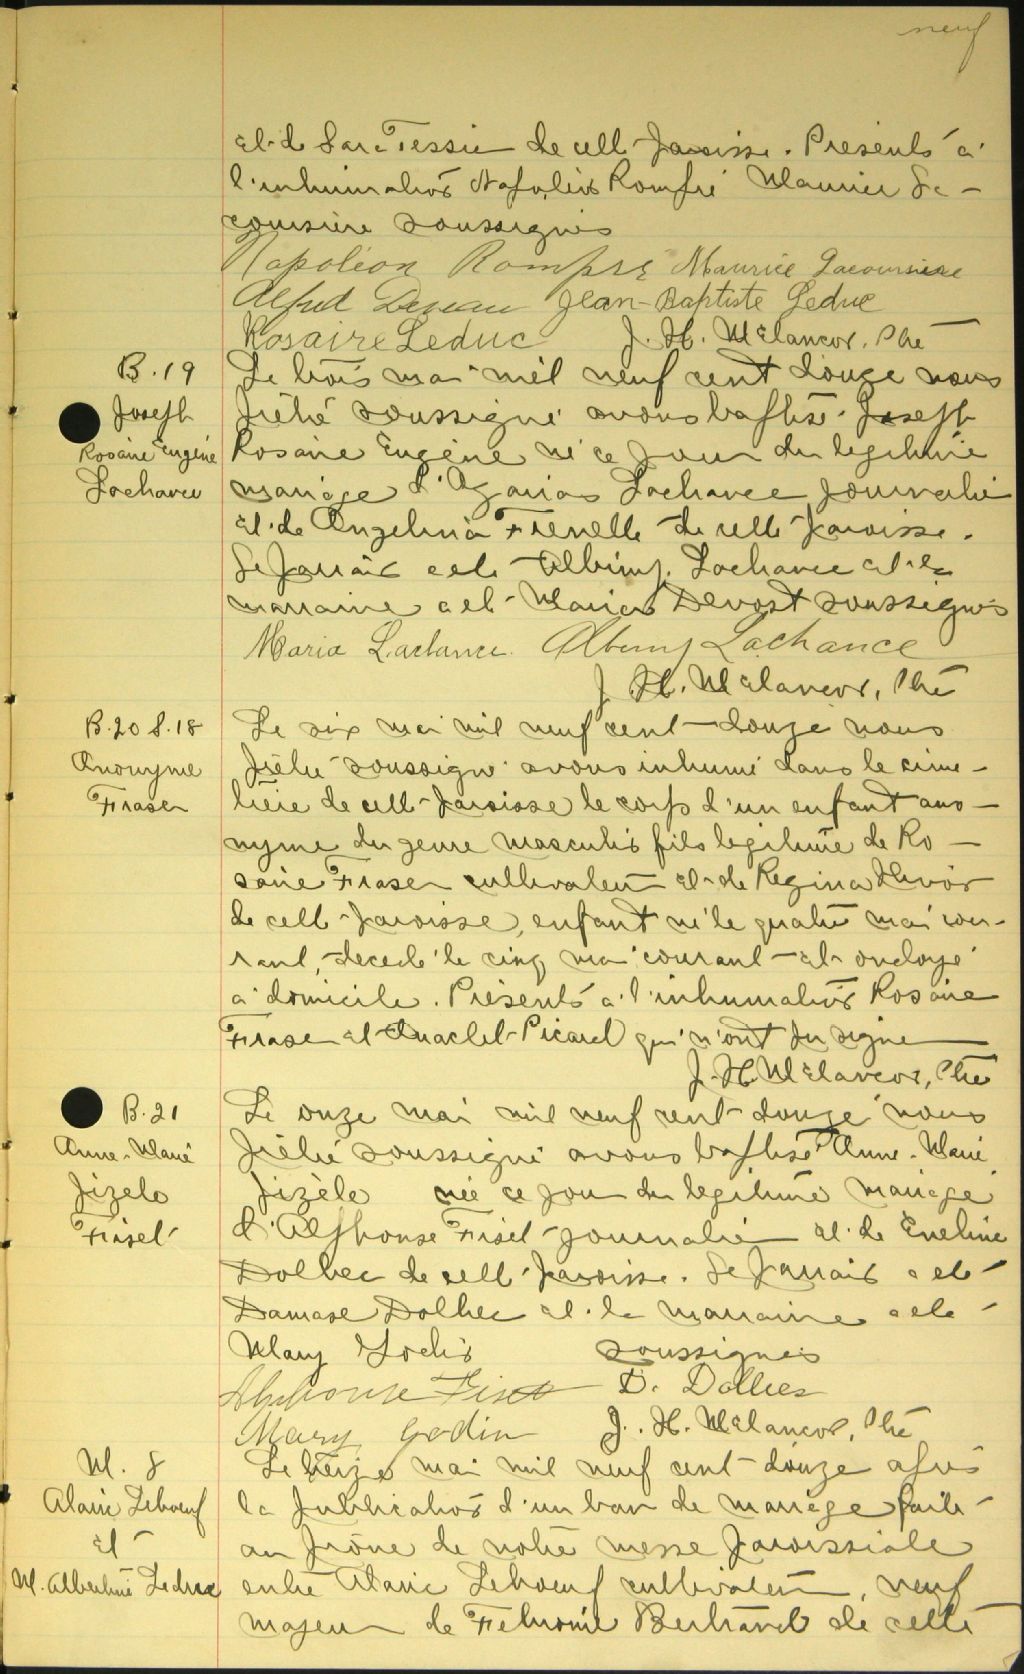 neuf
et de Sara Tessier de cette Paroisse. Présents à
l'inhumation Napoléon Rompré Maurice La-
coursière soussignés
Napoléon Rompré Maurice Lacoursière
Alfred Jean-Baptiste Leduc
Rosaire Leduc J. H. Melançon, Ptre
B. 19
Joseph
Rosaire Eugène
Lachance
Le trois mai mil neuf cent douze nous
Prêtre soussigné avons baptisé Joseph
Rosaire Eugène né ce jour du légitime
mariage d'Azarias Lachance journalier
et de Angelina Frenette de cette Paroisse.
Le Parrain a été Albiny Lachance et la
marraine a été Maria Devost soussignés
Maria Lachance. Albiny Lachance
J. H. Melançon, Ptre
B. 20 S. 18
Anonyme
Fraser
Le six mai mil neuf cent douze nous
Prêtre soussigné avons inhumé dans le cime-
tière de cette Paroisse le corps d'un enfant ano-
nyme du genre masculin fils légitime de Ro-
saire Fraser cultivateur et de Regina
de cette Paroisse, enfant né le quatre mai cou-
rant, décédé le cinq mai courant et ondoyé
à domicile. Présents à l'inhumation Rosaire
Fraser et Anaclet Picard qui n'ont su signer
J. H. Melançon, Ptre
B. 21
Anne-Marie
Jizele
Fiset
Le onze mai mil neuf cent douze nous
Prêtre soussigné avons baptisé Anne-Marie
Jizèle née ce jour du légitime mariage
d'Alphonse Fiset journalier et de Eveline
Dolbec de cette Paroisse. Le Parrain a été
Damase Dolbec et la marraine a été
Mary Godin soussignés
Alphonse Fiset D. Dolbec
Mary Godin J. H. Melançon, Ptre
M. 8
Alaric Leboeuf
et
M. Albertine Leduc
Le treize mai mil neuf cent douze après
la publication d'un ban de mariage faite
au prône de notre messe paroissiale
entre Alaric Leboeuf cultivateur, veuf
majeur de Fébronie Bertrand de cette